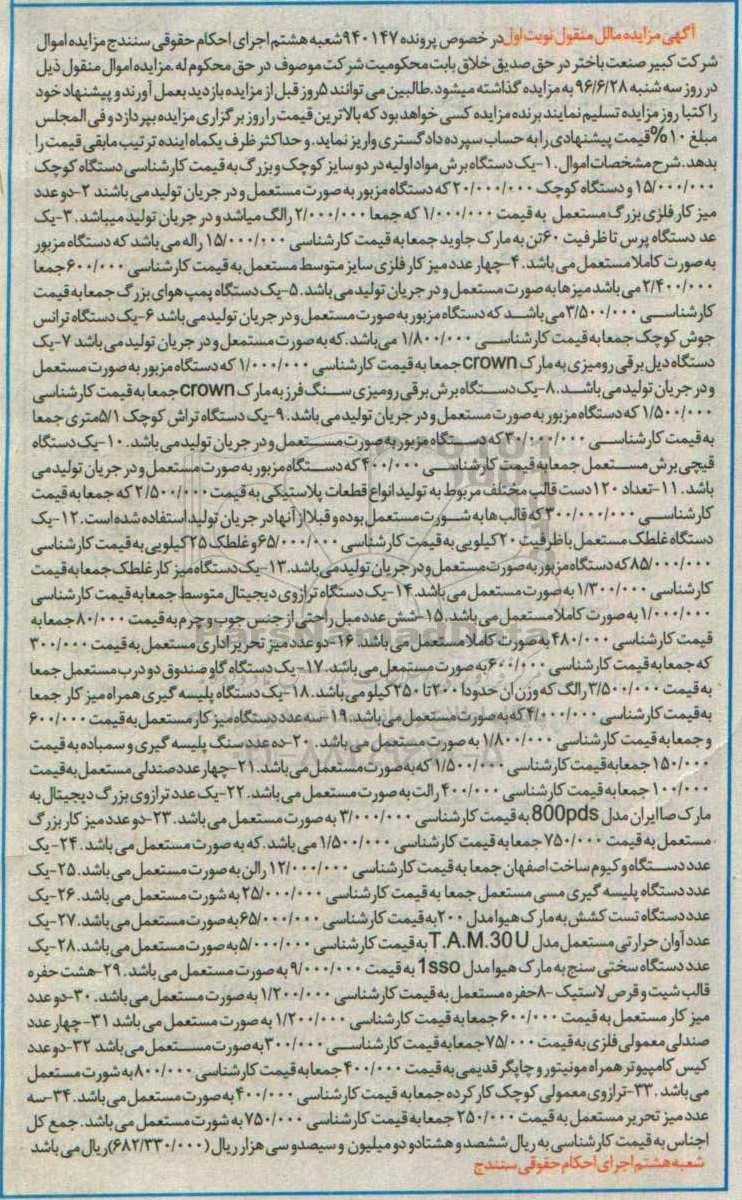 آگهی مزایده مالل منقول نوبت اول در خصوص پرونده ۹۴۰۱۴۷ شعبه هشتم اجرای احکام حقوقی سنندج مزایده اموال
شرکت کبیر صنعت باختر در حق صدیق خلاق بابت محکومیت شرکت موصوف در حق محکوم له. مزایده اموال منقول ذیل
در روز سه شنبه ۹۶/۶/۲۸ به مزایده گذاشته میشود. طالبین می توانند ۵روز قبل از مزایده بازدید بعمل آورند و پیشنهاد خود
را کتبا روز مزایده تسلیم نمایند برنده مزایده کسی خواهد بود که بالاترین قیمت را روز برگزاری مزایده بپردازد و فی المجلس
مبلغ ۱۰% قیمت پیشنهادی را به حساب سپرده دادگستری واریز نماید. و حداکثر ظرف یکماه اینده ترتیب مابقی قیمت را
بدهد. شرح مشخصات اموال. ۱-یک دستگاه برش مواد اولیه در دو سایز کوچک و بزرگ به قیمت کارشناسی دستگاه کوچک
۱۵/۰۰۰/۰۰۰ و دستگاه کوچک ۲۰/۰۰۰/۰۰۰ که دستگاه مزبور به صورت مستعمل و در جریان تولید می باشند ۲-دو عدد
میز کار فلزی بزرگ مستعمل به قیمت ۱/۰۰۰/۰۰۰ که جمعا ۲/۰۰۰/۰۰۰ رالگ میاشد و در جریان تولید میباشد. ۳-یک
عد دستگاه پرس تا ظرفیت ۶۰تن به مارک جاوید جمعا به قیمت کارشناسی ۱۵/۰۰۰/۰۰۰ راله می باشد که دستگاه مزبور
به صورت کاملا مستعمل می باشد. ۴-چهار عدد میز کار فلزی سایز متوسط مستعمل به قیمت کارشناسی ۶۰۰/۰۰۰جمعا
۲/۴۰۰/۰۰۰ می باشد میزها به صورت مستعمل و در جریان تولید می باشد. ۵-یک دستگاه پمپ هوای بزرگ جمعا به قیمت
کارشناسی ۳/۵۰۰/۰۰۰ می باشد که دستگاه مزبور به صورت مستعمل و در جریان تولید می باشد ۶-یک دستگاه ترانس
جوش کوچک جمعا به قیمت کارشناسی ۱/۸۰۰/۰۰۰ می‌باشد. که به صورت مستمعل و در جریان تولید می باشد ۷-یک
دستگاه دیل برقی رومیزی به مارک crown جمعا به قیمت کارشناسی ۱/۰۰۰/۰۰۰ که دستگاه مزبور به صورت مستعمل
و در جریان تولید می باشد. ۸-یک دستگاه برش برقی رومیزی سنگ فرز به مارک crown جمعا به قیمت کارشناسی
۱/۵۰۰/۰۰۰ که دستگاه مزبور به صورت مستعمل و در جریان تولید می باشد. ۹-یک دستگاه تراش کوچک ۵/۱متری جمعا
به قیمت کارشناسی ۳۰/۰۰۰/۰۰۰ که دستگاه مزبور به صورت مستعمل و در جریان تولید می باشد. ۱۰-یک دستگاه
قیچی برش مستعمل جمعا به قیمت کارشناسی ۴۰۰/۰۰۰ که دستگاه مزبور به صورت مستعمل و در جریان تولید می
باشد. ۱۱-تعداد ۱۲۰دست قالب مختلف مربوط به تولید انواع قطعات پلاستیکی به قیمت ۲/۵۰۰/۰۰۰ که جمعا به قیمت
کارشناسی ۳۰۰/۰۰۰/۰۰۰ که قالب ها به شورت مستعمل بوده و قبلا از آنها در جریان تولید استفاده شده است. ۱۲-یک
دستگاه غلطک مستعمل با ظرفیت ۲۰کیلویی به قیمت کارشناسی ۶۵/۰۰۰/۰۰۰ و غلطک ۲۵کیلویی به قیمت کارشناسی
۸۵/۰۰۰/۰۰۰ که دستگاه مزبور به صورت مستعمل و در جریان تولید می باشد. ۱۳-یک دستگاه میز کار غلطک جمعا به قیمت
کارشناسی ۱/۳۰۰/۰۰۰ به صورت مستعمل می باشد. ۱۴-یک دستگاه ترازوی دیجیتال متوسط جمعا به قیمت کارشناسی
۱/۰۰۰/۰۰۰ به صورت کاملا مستعمل می باشد. ۱۵-شش عدد مبل راحتی از جنس چوب و چرم به قیمت ۸۰/۰۰۰ جمعا به
قیمت کارشناسی ۴۸۰/۰۰۰ به صورت کاملا مستعمل می باشد. ۱۶-دو عدد میز تحریر اداری مستعمل به قیمت ۳۰۰/۰۰۰
که جمعا به قیمت کارشناسی ۶۰۰/۰۰۰ به صورت مستمعل می باشد. ۱۷-یک دستگاه گاو صندوق دو درب مستعمل جمعا
به قیمت ۳/۵۰۰/۰۰۰ رالگ که وزن ان حدودا ۲۰۰ تا ۲۵۰ کیلو می باشد. ۱۸-یک دستگاه پلیسه گیری همراه میز کار جمعا
به قیمت کارشناسی ۴/۰۰۰/۰۰۰ که به صورت مستعمل می باشد. ۱۹-سه عدد دستگاه میز کار مستعمل به قیمت ۶۰۰/۰۰۰
و جمعا به قیمت کارشناسی ۱/۸۰۰/۰۰۰ به صورت مستعمل می باشد. ۲۰-ده عدد سنگ پلیسه گیری و سمباده به قیمت
۱۵۰/۰۰۰ جمعا به قیمت کارشناسی ۱/۵۰۰/۰۰۰ که به صورت مستعمل می باشد. ۲۱-چهار عدد صندلی مستعمل به قیمت
۱۰۰/۰۰۰ جمعا به قیمت کارشناسی ۴۰۰/۰۰۰ رالت به صورت مستعمل می باشد. ۲۲-یک عدد ترازوی بزرگ دیجیتال به
مارک صاایران مدل 800pds به قیمت کارشناسی ۳/۰۰۰/۰۰۰ به صورت مستعمل می باشد. ۲۳-دو عدد میز کار بزرگ
مستعمل به قیمت ۷۵۰/۰۰۰ جمعا به قیمت کارشناسی ۱/۵۰۰/۰۰۰ می باشد. که به صورت مستعمل می باشد. ۲۴-یک
عدد دستگاه وکیوم ساخت اصفهان جمعا به قیمت کارشناسی ۱۲/۰۰۰/۰۰۰ رالن به صورت مستعمل می باشد. ۲۵-یک
عدد دستگاه پلیسه گیری مسی مستعمل جمعا به قیمت کارشناسی ۲۵/۰۰۰/۰۰۰ به شورت مستعمل می باشد. ۲۶-یک
عدد دستگاه تست کشش به مارک هیوا مدل ۲۰۰ به قیمت کارشناسی ۶۵/۰۰۰/۰۰۰ به صورت مستعمل می باشد. ۲۷-یک
عدد آوان حرارتی مستعمل مدل T.A.M.30 U به قیمت کارشناسی ۵/۰۰۰/۰۰۰ به صورت مستعمل می باشد. ۲۸-یک
عدد دستگاه سختی سنج به مارک هیوا مدل 1sso به قیمت ۹/۰۰۰/۰۰۰ به صورت مستعمل می باشد. ۲۹-هشت حفره
قالب شیت و قرص لاستیک -۸حفره مستعمل به قیمت کارشناسی ۱/۲۰۰/۰۰۰ به صورت مستعمل می باشد. ۳۰-دو عدد
میز کار مستعمل به قیمت ۶۰۰/۰۰۰ جمعا به قیمت کارشناسی ۱/۲۰۰/۰۰۰ به صورت مستعمل می باشد ۳۱-چهار عدد
صندلی معمولی فلزی به قیمت ۷۵/۰۰۰ جمعا به قیمت کارشناسی ۳۰۰/۰۰۰ به صورت مستعمل می باشد ۳۲-دو عدد
کیس کامپیوتر همراه مونیتور و چاپگر قدیمی به قیمت ۴۰۰/۰۰۰ جمعا به قیمت کارشناسی ۸۰۰/۰۰۰ به شورت مستعمل
می باشد. ۳۳-ترازوی معمولی کوچک کار کرده جمعا به قیمت کارشناسی ۴۰۰/۰۰۰ به صورت مستعمل می باشد. ۳۴-سه
عدد میز تحریر مستعمل به قیمت ۲۵۰/۰۰۰ جمعا به قیمت کارشناسی ۷۵۰/۰۰۰ به شورت مستعمل می باشد. جمع کل
اجناس به قیمت کارشناسی به ریال ششصد و هشتاد و دو میلیون و سیصد و سی هزار ریال (۶۸۲/۳۳۰/۰۰۰) ریال می باشد
شعبه هشتم اجرای احکام حقوقی سنندج